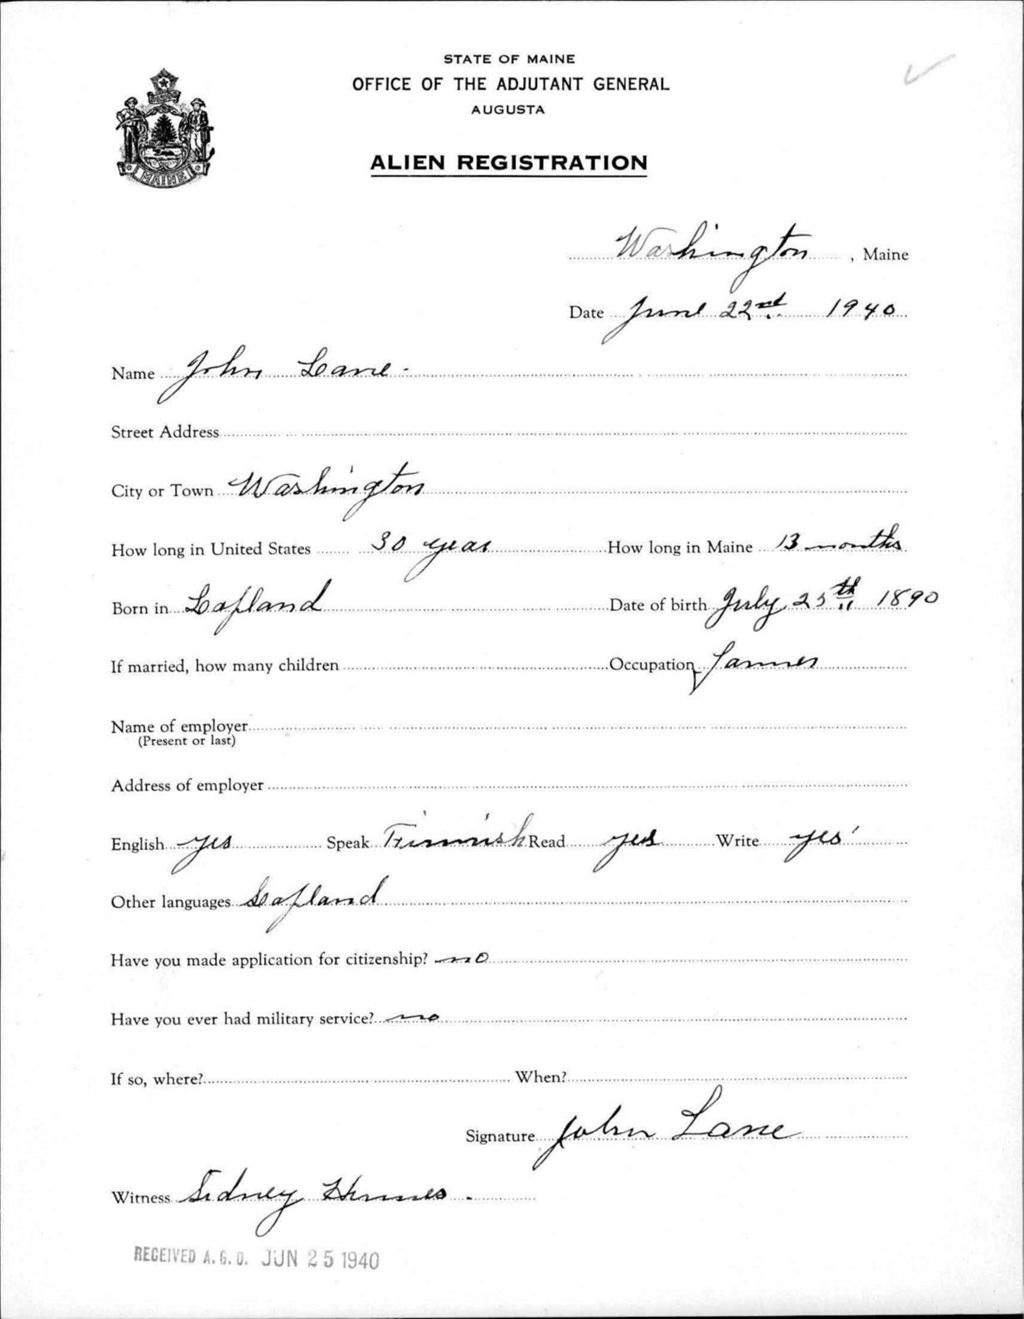 STATE OF MAINE
OFFICE OF THE ADJUTANT GENERAL
AUGUSTA
ALIEN REGISTRATION
MAINE
Washington, Maine
Date June 22nd 1940
Name John Lane
Street Address
City or Town Washington
How long in United States 30 year How long in Maine 13 months
Born in Lapland Date of birth July 25th 1890
If married, how many children Occupation Farmer
Name of employer
(Present or last)
Address of employer
English yes Speak Finnish Read yes Write yes
Other languages Lapland
Have you made application for citizenship? no
Have you ever had military service? no
If so, where? When?
Signature John Lane
Witness Sidney
RECEIVED A.G.O. JUN 25 1940